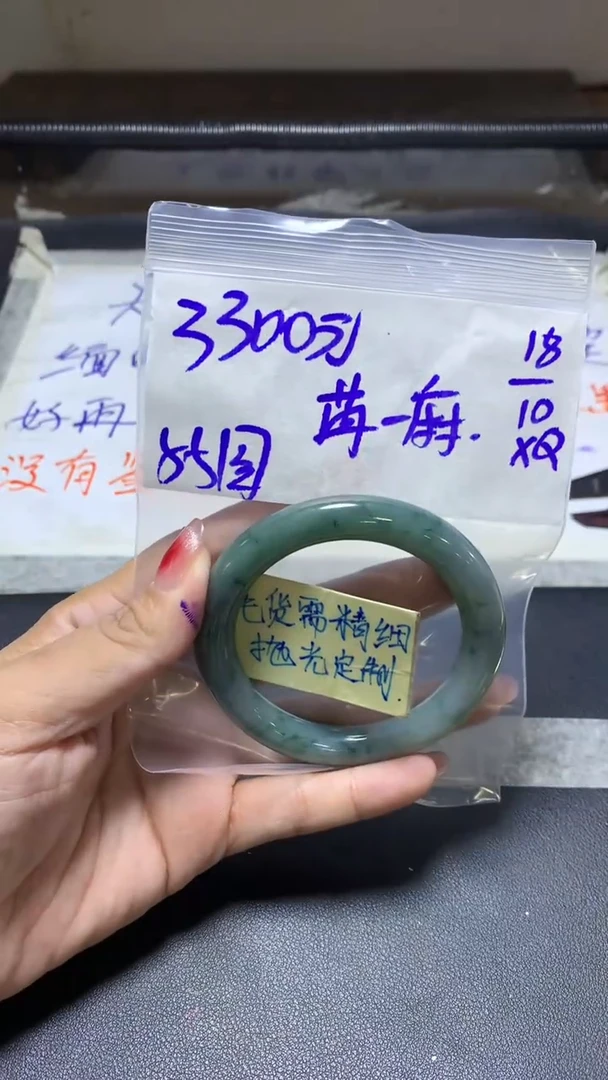 3300元
苒一麻.
85圆
18
10
XQ
毛货需精细
抛光定制.
缅
好再
没有